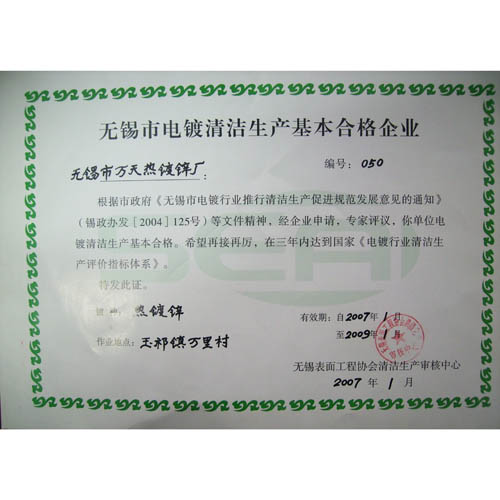 无锡市电镀清洁生产基本合格企业
无锡市万天热镀锌厂：
编号：050
根据市政府《无锡市电镀行业推行清洁生产促进规范发展意见的通知》
（锡政办发［2004］125号）等文件精神，经企业申请，专家评议，你单位电
镀清洁生产基本合格。希望再接再厉，在三年内达到国家《电镀行业清洁生
产评价指标体系》。
特发此证。
镀 种：热镀锌
有效期：自2007年1月
至2009年1月
作业地点：玉祁镇万里村
无锡表面工程协会清洁生产审核中心
2007 年 1 月